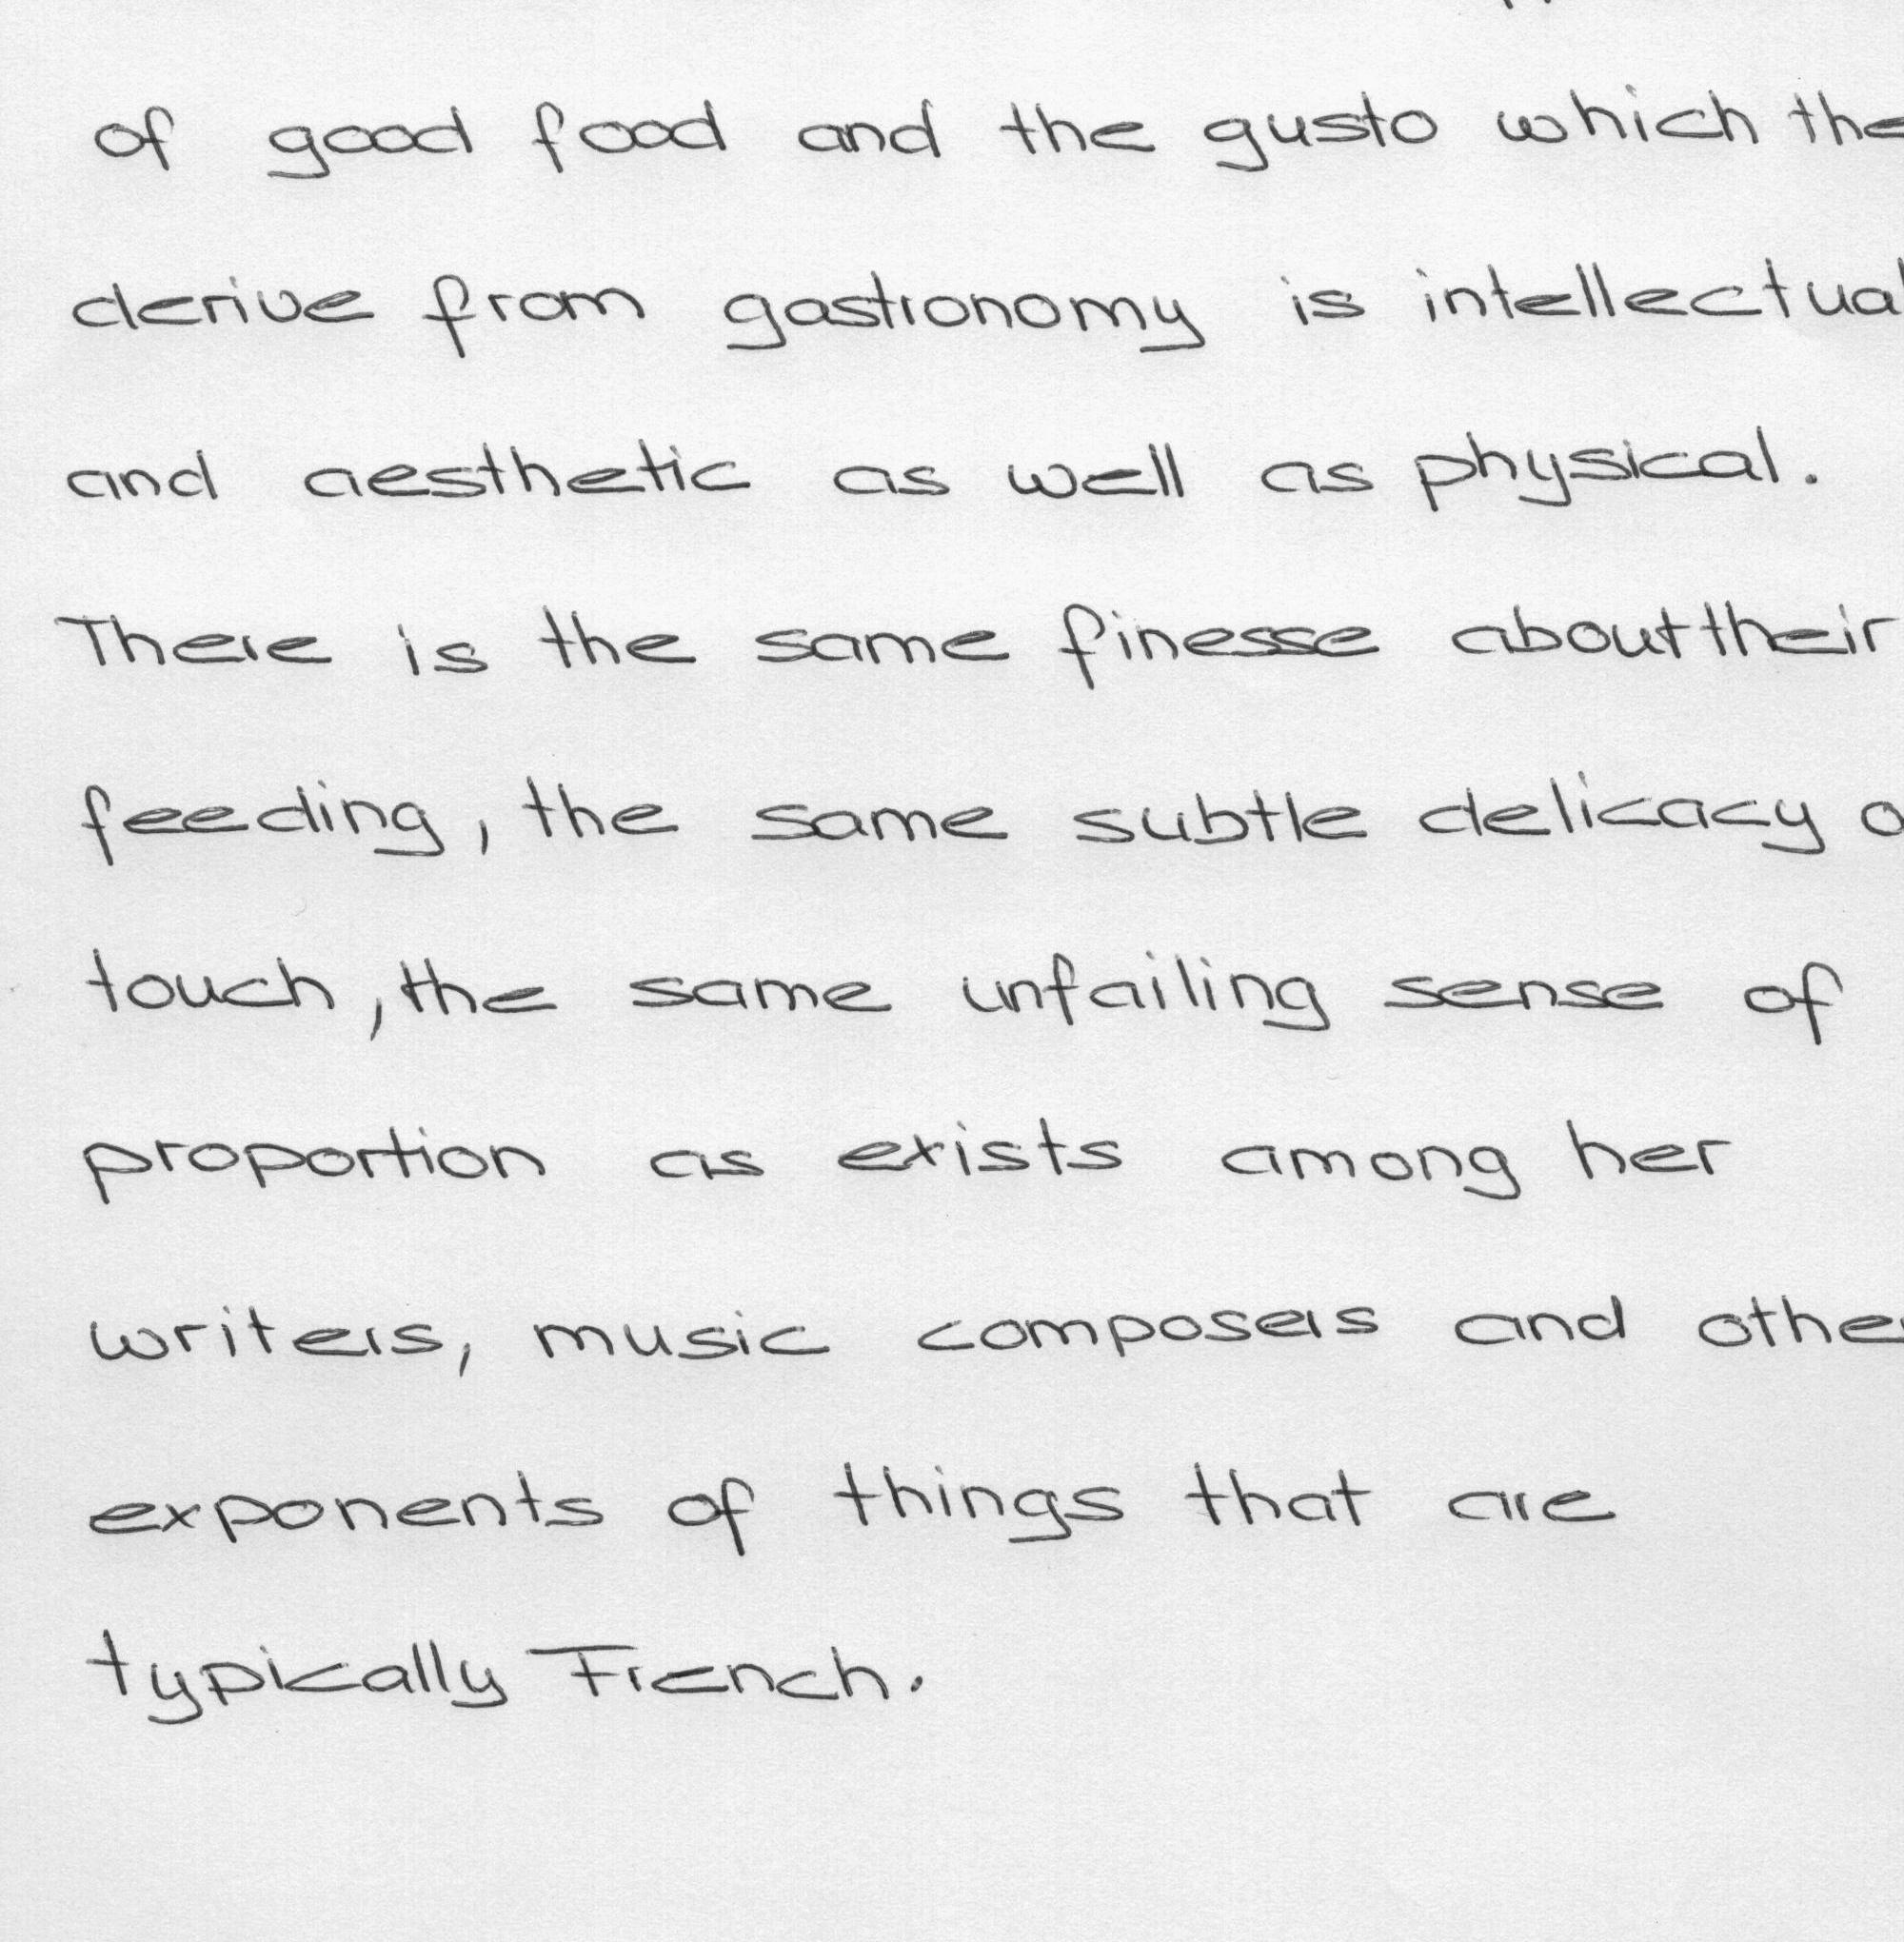 of good food and the gusto which the
derive from gastronomy is intellectual
and aesthetic as well as physical.
There is the same finesse about their
feeding, the same subtle delicacy o
touch, the same unfailing sense of
proportion as exists among her
writers, music composers and other
exponents of things that are
typically French.